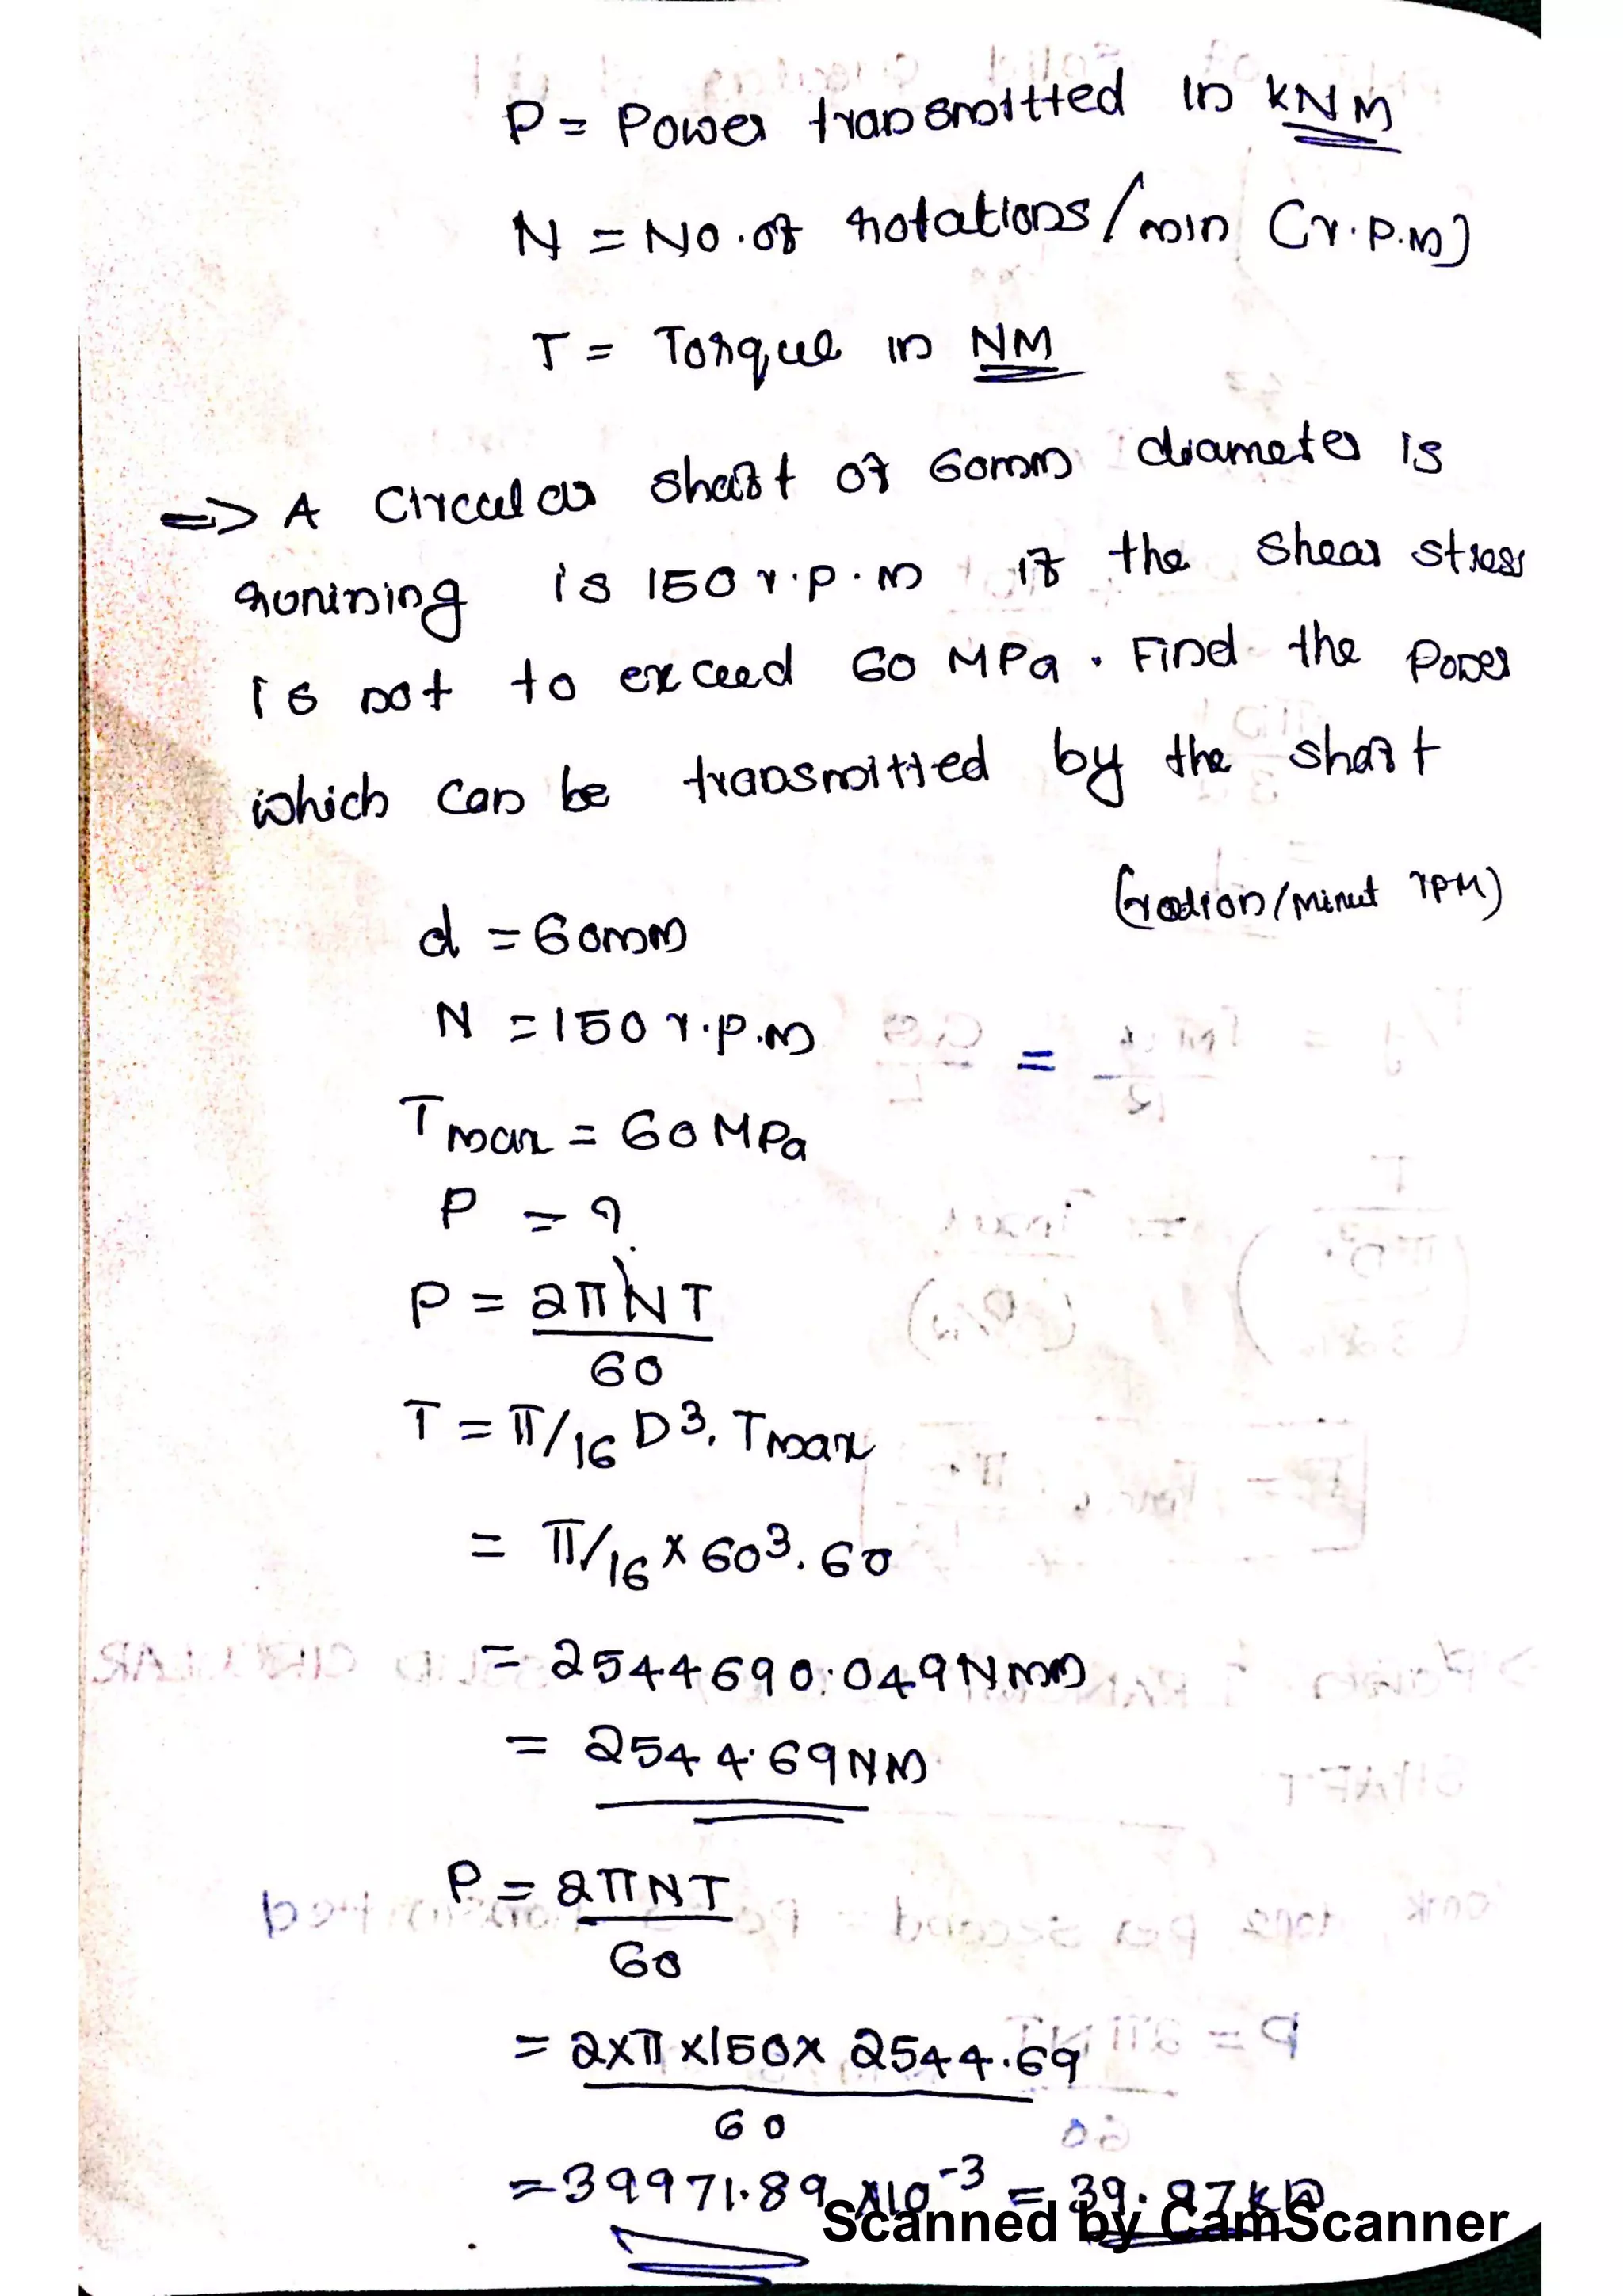 P = Power transmitted in kNM
N = No. of rotations/min (r.p.m)
T = Torque in NM
=> A Circular shaft of 60mm diameter is
running is 150 r.p.m if the shear stress
is not to exceed 60 MPa. Find the Power
which can be transmitted by the shaft
(radion/Minut rPM)
d = 60mm
N = 150 r.p.m
=
Tmax = 60 MPa
P = ?
P = 2πNT
60
T = π/16 D³. Tmax
= π/16 × 60³. 60
= 2544690.049 Nmm
= 2544.69 NM
P = 2πNT
60
= 2×π×150× 2544.69
60
= 39971.89 ×10⁻³ = 39.97 kw
Scanned by CamScanner